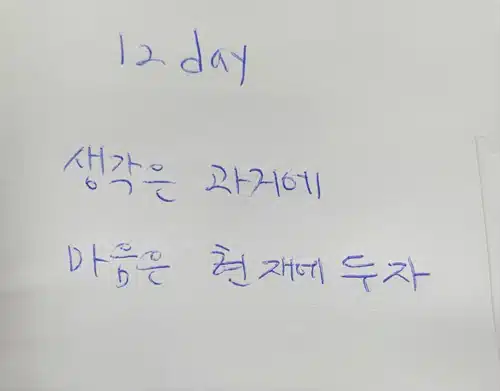 12 day
생각은 과거에
마음은 현재에 두자